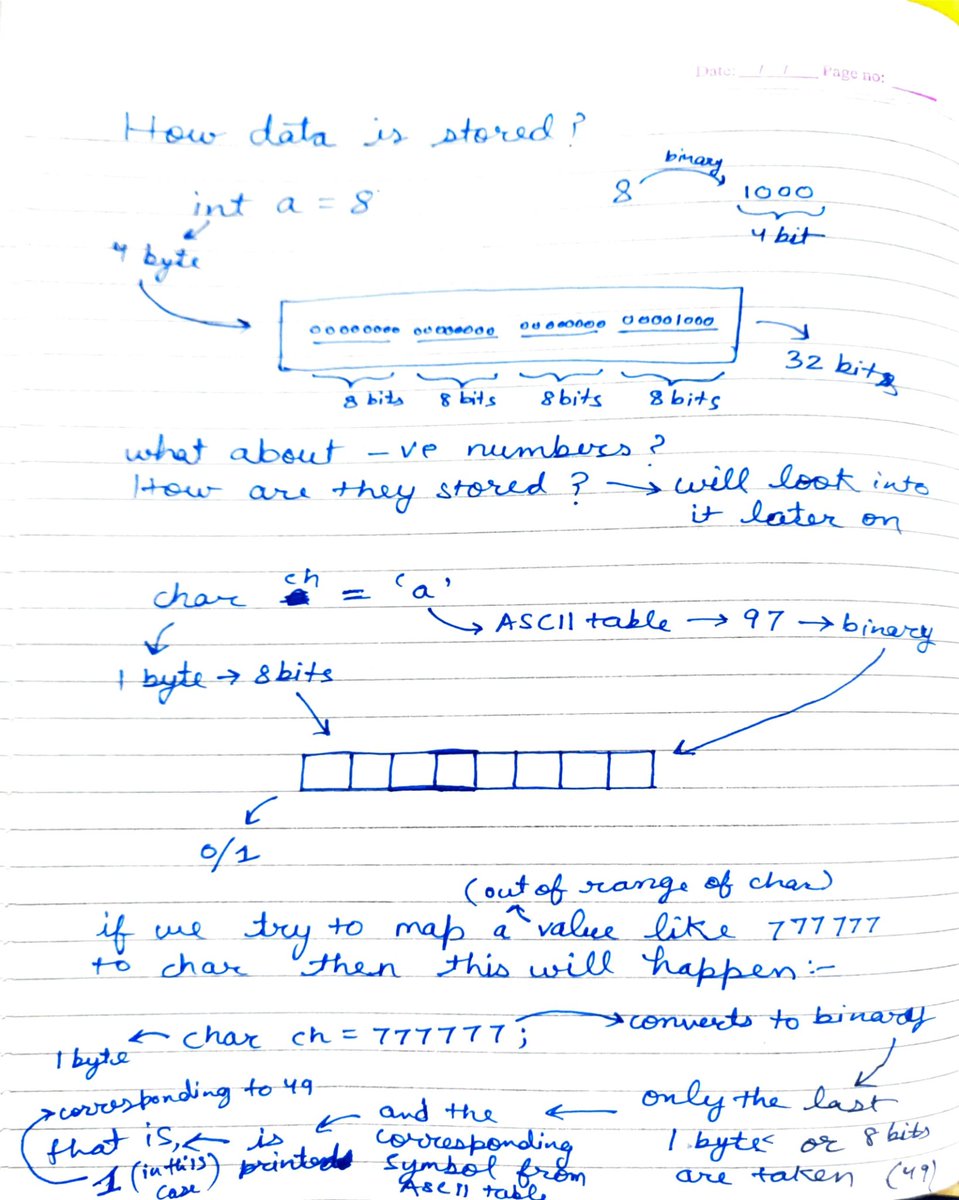 Date: / / Page no:
How data is stored?
int a = 8
8 binary 1000
4 bit
4 byte
00000000 00000000 00000000 00001000
32 bits
8 bits 8 bits 8 bits 8 bits
what about -ve numbers?
How are they stored? → will look into
it later on
char ch = 'a'
→ ASCII table → 97 → binary
1 byte → 8 bits
0/1
(out of range of char)
if we try to map a value like 777777
to char then this will happen:-
1 byte ← char ch = 777777; → converts to binary
only the last
1 byte or 8 bits
are taken (49)
← and the
corresponding
symbol from
ASCII table
← is
printed
← that is,
1 (in this
case)
→ corresponding to 49